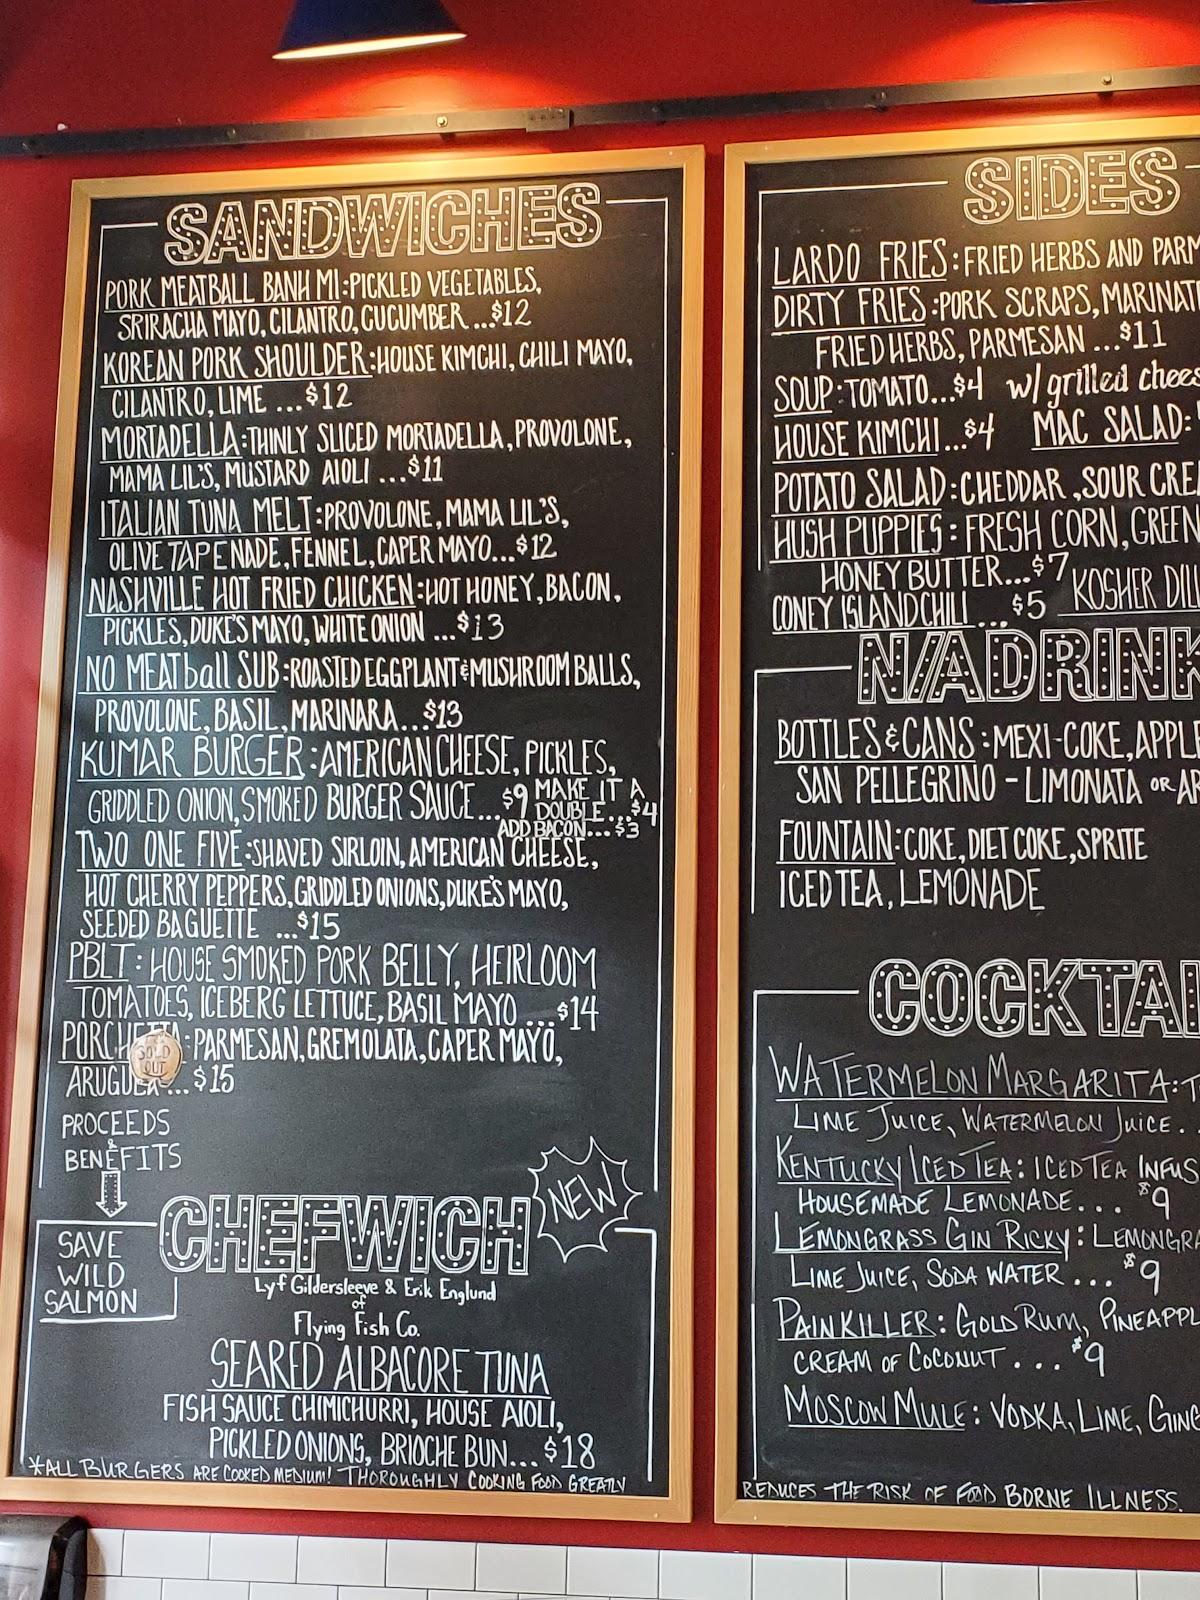 SANDWICHES
PORK MEATBALL BANH MI: PICKLED VEGETABLES,
SRIRACHA MAYO, CILANTRO, CUCUMBER...$12
KOREAN PORK SHOULDER: HOUSE KIMCHI, CHILI MAYO,
CILANTRO, LIME ...$12
MORTADELLA: THINLY SLICED MORTADELLA, PROVOLONE,
MAMA LIL'S, MUSTARD AIOLI ...$11
ITALIAN TUNA MELT: PROVOLONE, MAMA LIL'S,
OLIVE TAPENADE, FENNEL, CAPER MAYO...$12
NASHVILLE HOT FRIED CHICKEN: HOT HONEY, BACON,
PICKLES, DUKE'S MAYO, WHITE ONION ...$13
NO MEATball SUB: ROASTED EGGPLANT & MUSHROOM BALLS,
PROVOLONE, BASIL, MARINARA...$13
KUMAR BURGER: AMERICAN CHEESE, PICKLES,
GRIDDLED ONION, SMOKED BURGER SAUCE...$9 MAKE IT A
DOUBLE...$4
ADD BACON...$3
TWO ONE FIVE: SHAVED SIRLOIN, AMERICAN CHEESE,
HOT CHERRY PEPPERS, GRIDDLED ONIONS, DUKE'S MAYO,
SEEDED BAGUETTE ...$15
PBLT: HOUSE SMOKED PORK BELLY, HEIRLOOM
TOMATOES, ICEBERG LETTUCE, BASIL MAYO ...$14
PORCHETTA: PARMESAN, GREMOLATA, CAPER MAYO,
SOLD
OUT
ARUGULA...$15
PROCEEDS
&
BENEFITS
SAVE
WILD
SALMON
CHEFWICH
NEW
Lyf Gildersleeve & Erik Englund
of
Flying Fish Co.
SEARED ALBACORE TUNA
FISH SAUCE CHIMICHURRI, HOUSE AIOLI,
PICKLED ONIONS, BRIOCHE BUN...$18
*ALL BURGERS ARE COOKED MEDIUM! THOROUGHLY COOKING FOOD GREATLY
SIDES
LARDO FRIES: FRIED HERBS AND PARM
DIRTY FRIES: PORK SCRAPS, MARINAT
FRIED HERBS, PARMESAN ...$11
SOUP: TOMATO...$4 w/grilled chees
HOUSE KIMCHI...$4 MAC SALAD:
POTATO SALAD: CHEDDAR, SOUR CREA
HUSH PUPPIES: FRESH CORN, GREEN
HONEY BUTTER...$7 KOSHER DILL
CONEY ISLAND CHILI ...$5
N/A DRINK
BOTTLES & CANS: MEXI-COKE, APPLE
SAN PELLEGRINO - LIMONATA OR AR
FOUNTAIN: COKE, DIET COKE, SPRITE
ICED TEA, LEMONADE
COCKTAI
WATERMELON MARGARITA: T
LIME JUICE, WATERMELON JUICE..
KENTUCKY ICED TEA: ICED TEA INFUS
HOUSEMADE LEMONADE... $9
LEMONGRASS GIN RICKY: LEMONGRA
LIME JUICE, SODA WATER ... $9
PAINKILLER: GOLD RUM, PINEAPPL
CREAM OF COCONUT ... $9
MOSCOW MULE: VODKA, LIME, GING
REDUCES THE RISK OF FOOD BORNE ILLNESS.